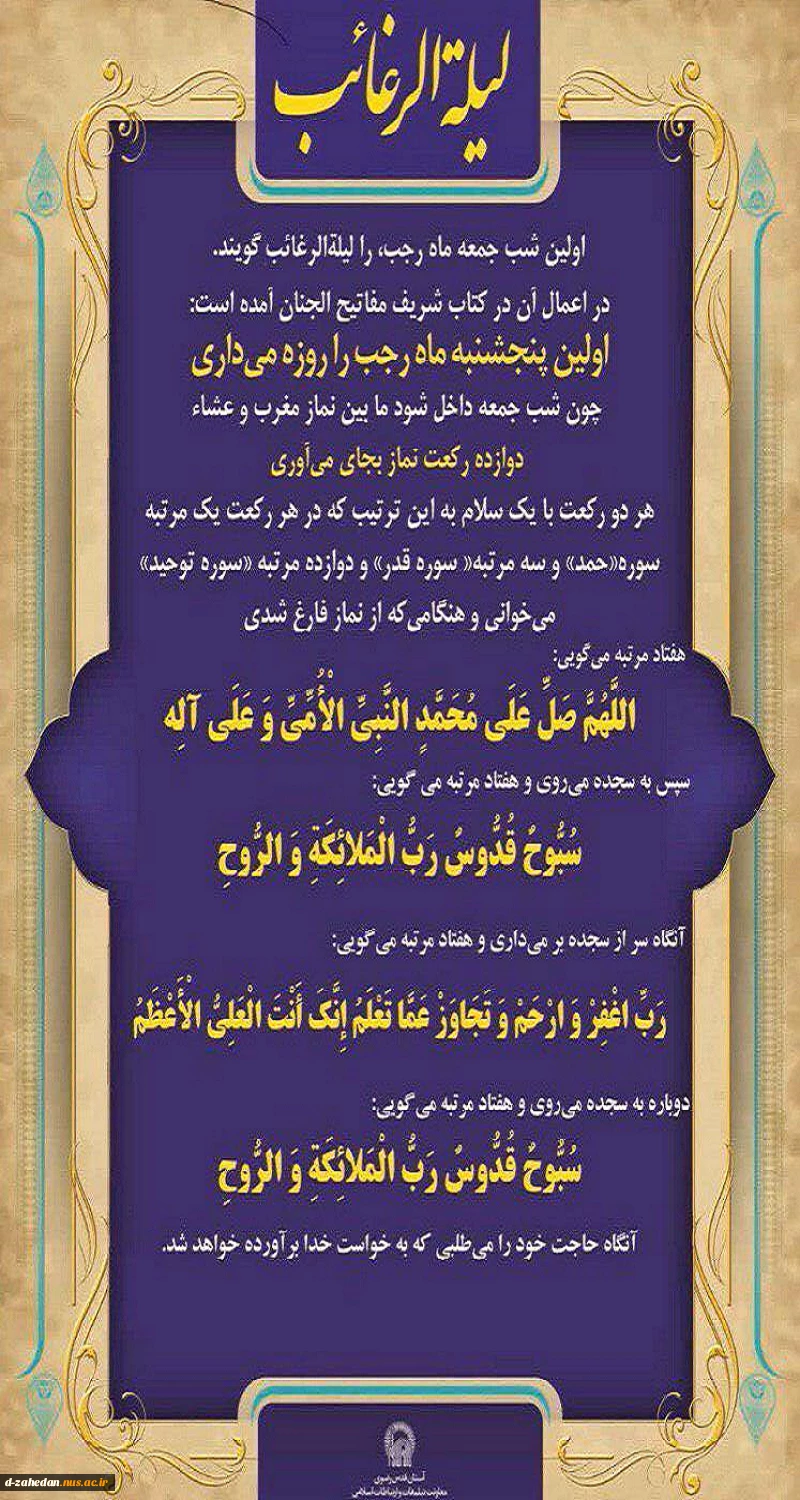 لیلةالرغائب
اولین شب جمعه ماه رجب، را لیلةالرغائب گویند.
در اعمال آن در کتاب شریف مفاتیح الجنان آمده است:
اولین پنجشنبه ماه رجب را روزه می‌داری
چون شب جمعه داخل شود ما بین نماز مغرب و عشاء
دوازده رکعت نماز بجای می‌آوری
هر دو رکعت با یک سلام به این ترتیب که در هر رکعت یک مرتبه
سوره«حمد» و سه مرتبه« سوره قدر» و دوازده مرتبه «سوره توحید»
می‌خوانی و هنگامی‌که از نماز فارغ شدی
هفتاد مرتبه می‌گویی:
اللَّهُمَّ صَلِّ عَلَى مُحَمَّدٍ النَّبِیِّ الْأُمِّیِّ وَ عَلَى آلِه
سپس به سجده می‌روی و هفتاد مرتبه می گویی:
سُبُّوحٌ قُدُّوسٌ رَبُّ الْمَلائِكَةِ وَ الرُّوحِ
آنگاه سر از سجده بر می‌داری و هفتاد مرتبه می گویی:
رَبِّ اغْفِرْ وَ ارْحَمْ وَ تَجَاوَزْ عَمَّا تَعْلَمُ إِنَّکَ أَنْتَ الْعَلِیُّ الْأَعْظَمُ
دوباره به سجده می‌روی و هفتاد مرتبه می گویی:
سُبُّوحٌ قُدُّوسٌ رَبُّ الْمَلائِكَةِ وَ الرُّوحِ
آنگاه حاجت خود را می‌طلبی که به خواست خدا برآورده خواهد شد.
آستان قدس رضوی
معاونت تبلیغات و ارتباطات اسلامی
d-zahedan.nus.ac.ir